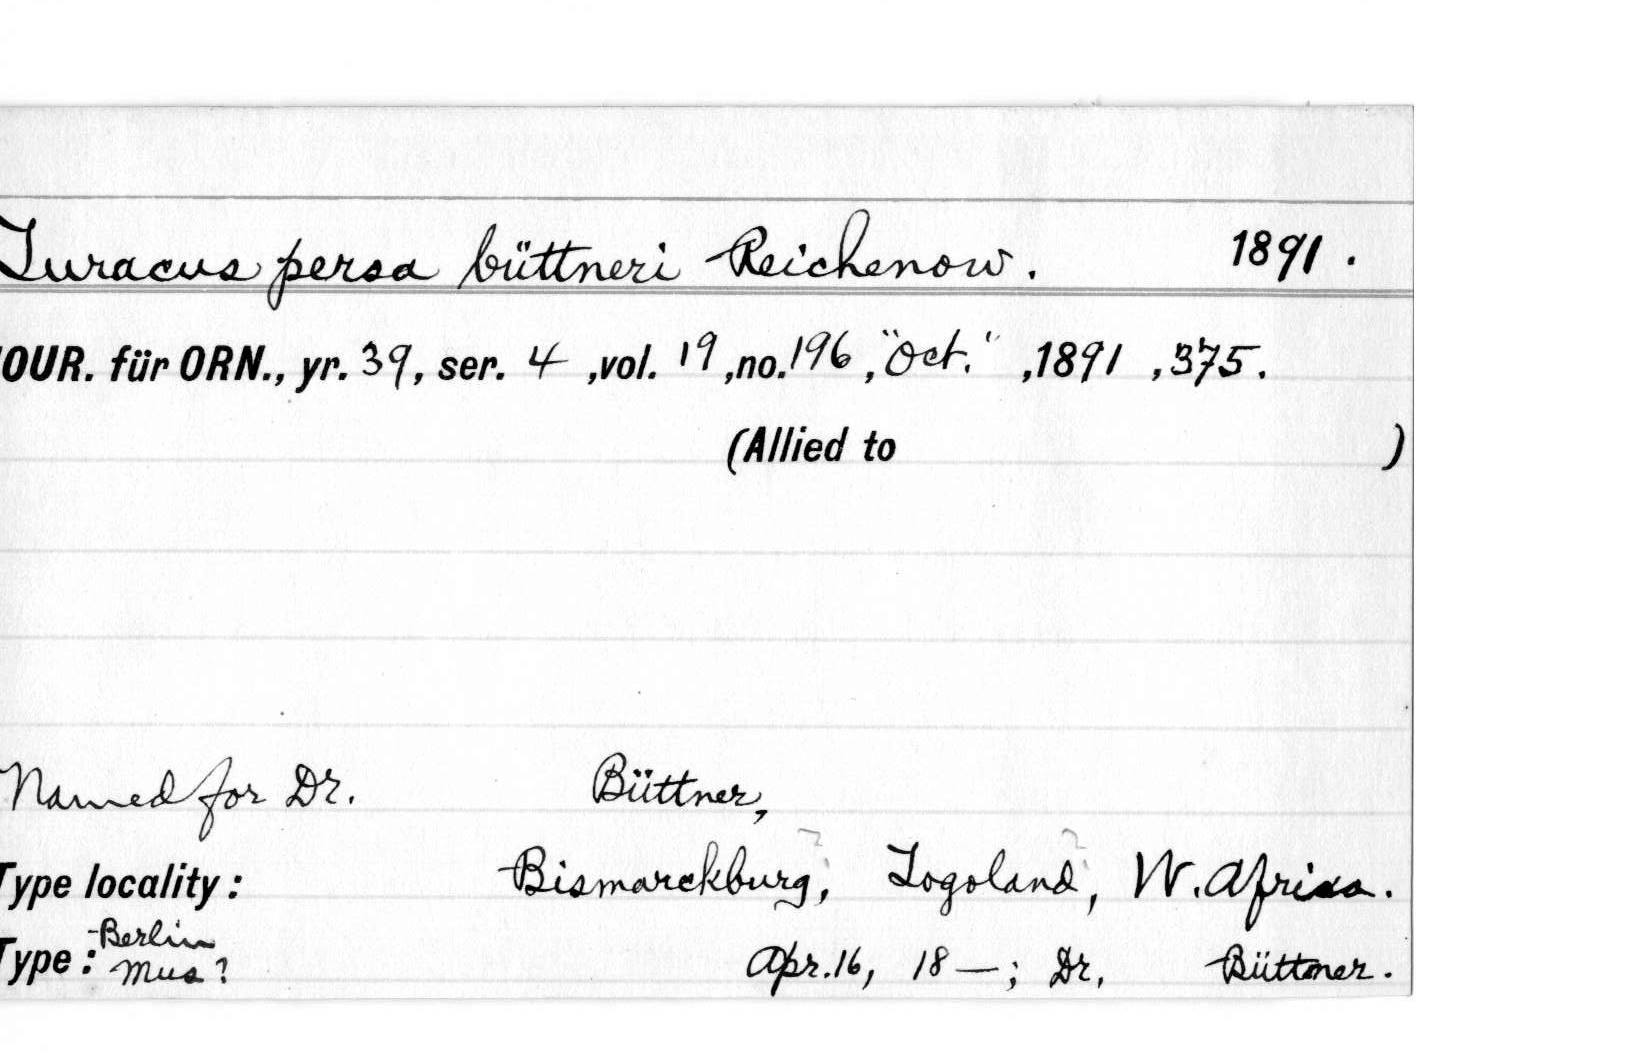 Turacus persa büttneri Reichenow. 1891.
OUR. für ORN., yr. 39, ser. 4, vol. 19, no. 196, "Oct.", 1891, 375.
(Allied to )
Named for Dr. Büttner,
Bismarckburg?, Togoland?, W. Africa.
Type locality:
Type: Berlin Mus? Apr. 16, 18—; Dr. Büttner.